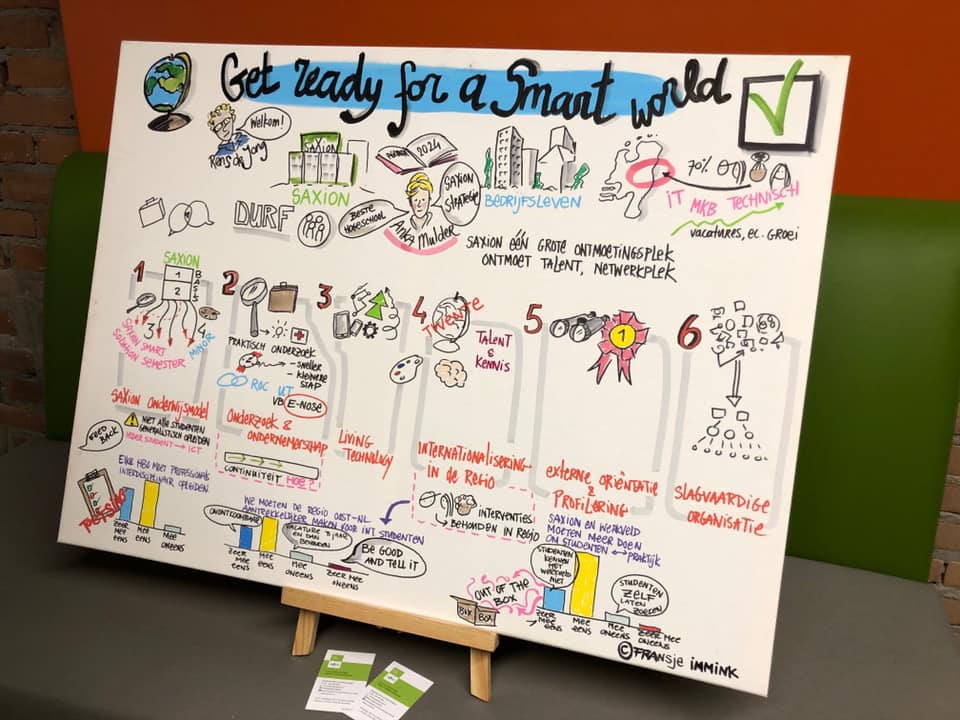 Get ready for a Smart world
Welkom!
Rens de Jong
SAXION
SAXION
2024
SAXION
STRATEGIE
BESTE
HOGESCHOOL
Anka Mulder
BEDRIJFSLEVEN
70%
IT MKB TECHNISCH
vacatures, ec. GROEI
DURF
SAXION ÉÉN GROTE ONTMOETINGSPLEK
ONTMOET TALENT, NETWERKPLEK
1
SAXION
1
2
BASIS
3
4
SAXION SMART
SOLUTION SEMESTER
MINOR
SAXION ONDERWIJSMODEL
FEED
BACK
NIET ALLE STUDENTEN
GENERALISTISCH OPLEIDEN
IEDER STUDENT → ICT
ELKE HBO MOET PROFESSIONALS
INTERDISCIPLINAIR OPLEIDEN
TOETSING
ZEER
MEE
EENS
MEE
EENS
MEE
ONEENS
2
PRAKTISCH ONDERZOEK
- sneller
- kleinere
STAP
ROC UT
VB E-NOSE
ONDERZOEK &
ONDERNEMERSCHAP
CONTINUITEIT HOE?!
3
LIVING
TECHNOLOGY
WE MOETEN DE REGIO OOST-NL
AANTREKKELIJKER MAKEN VOOR INT STUDENTEN
ZEER
MEE EENS
MEE
EENS
MEE
ONEENS
ZEER MEE
ONEENS
BE GOOD
AND TELL IT
4
TWENTE
TALENT
&
KENNIS
INTERNATIONALISERING
IN DE REGIO
INTERVENTIES
BEHOUDEN IN REGIO
5
1
EXTERNE ORIËNTATIE
&
PROFILERING
SAXION EN WERKVELD
MOETEN MEER DOEN
OM STUDENTEN ↔ PRAKTIJK
OUT OF THE
BOX
BOX
BOX
STUDENTEN
KENNEN
HET
WERKVELD
NIET
STUDENTEN
ZELF
LATEN
ZOEKEN
ZEER MEE
EENS
MEE
EENS
MEE
ONEENS
ZEER MEE
ONEENS
6
SLAGVAARDIGE
ORGANISATIE
© FRANsje IMMINK